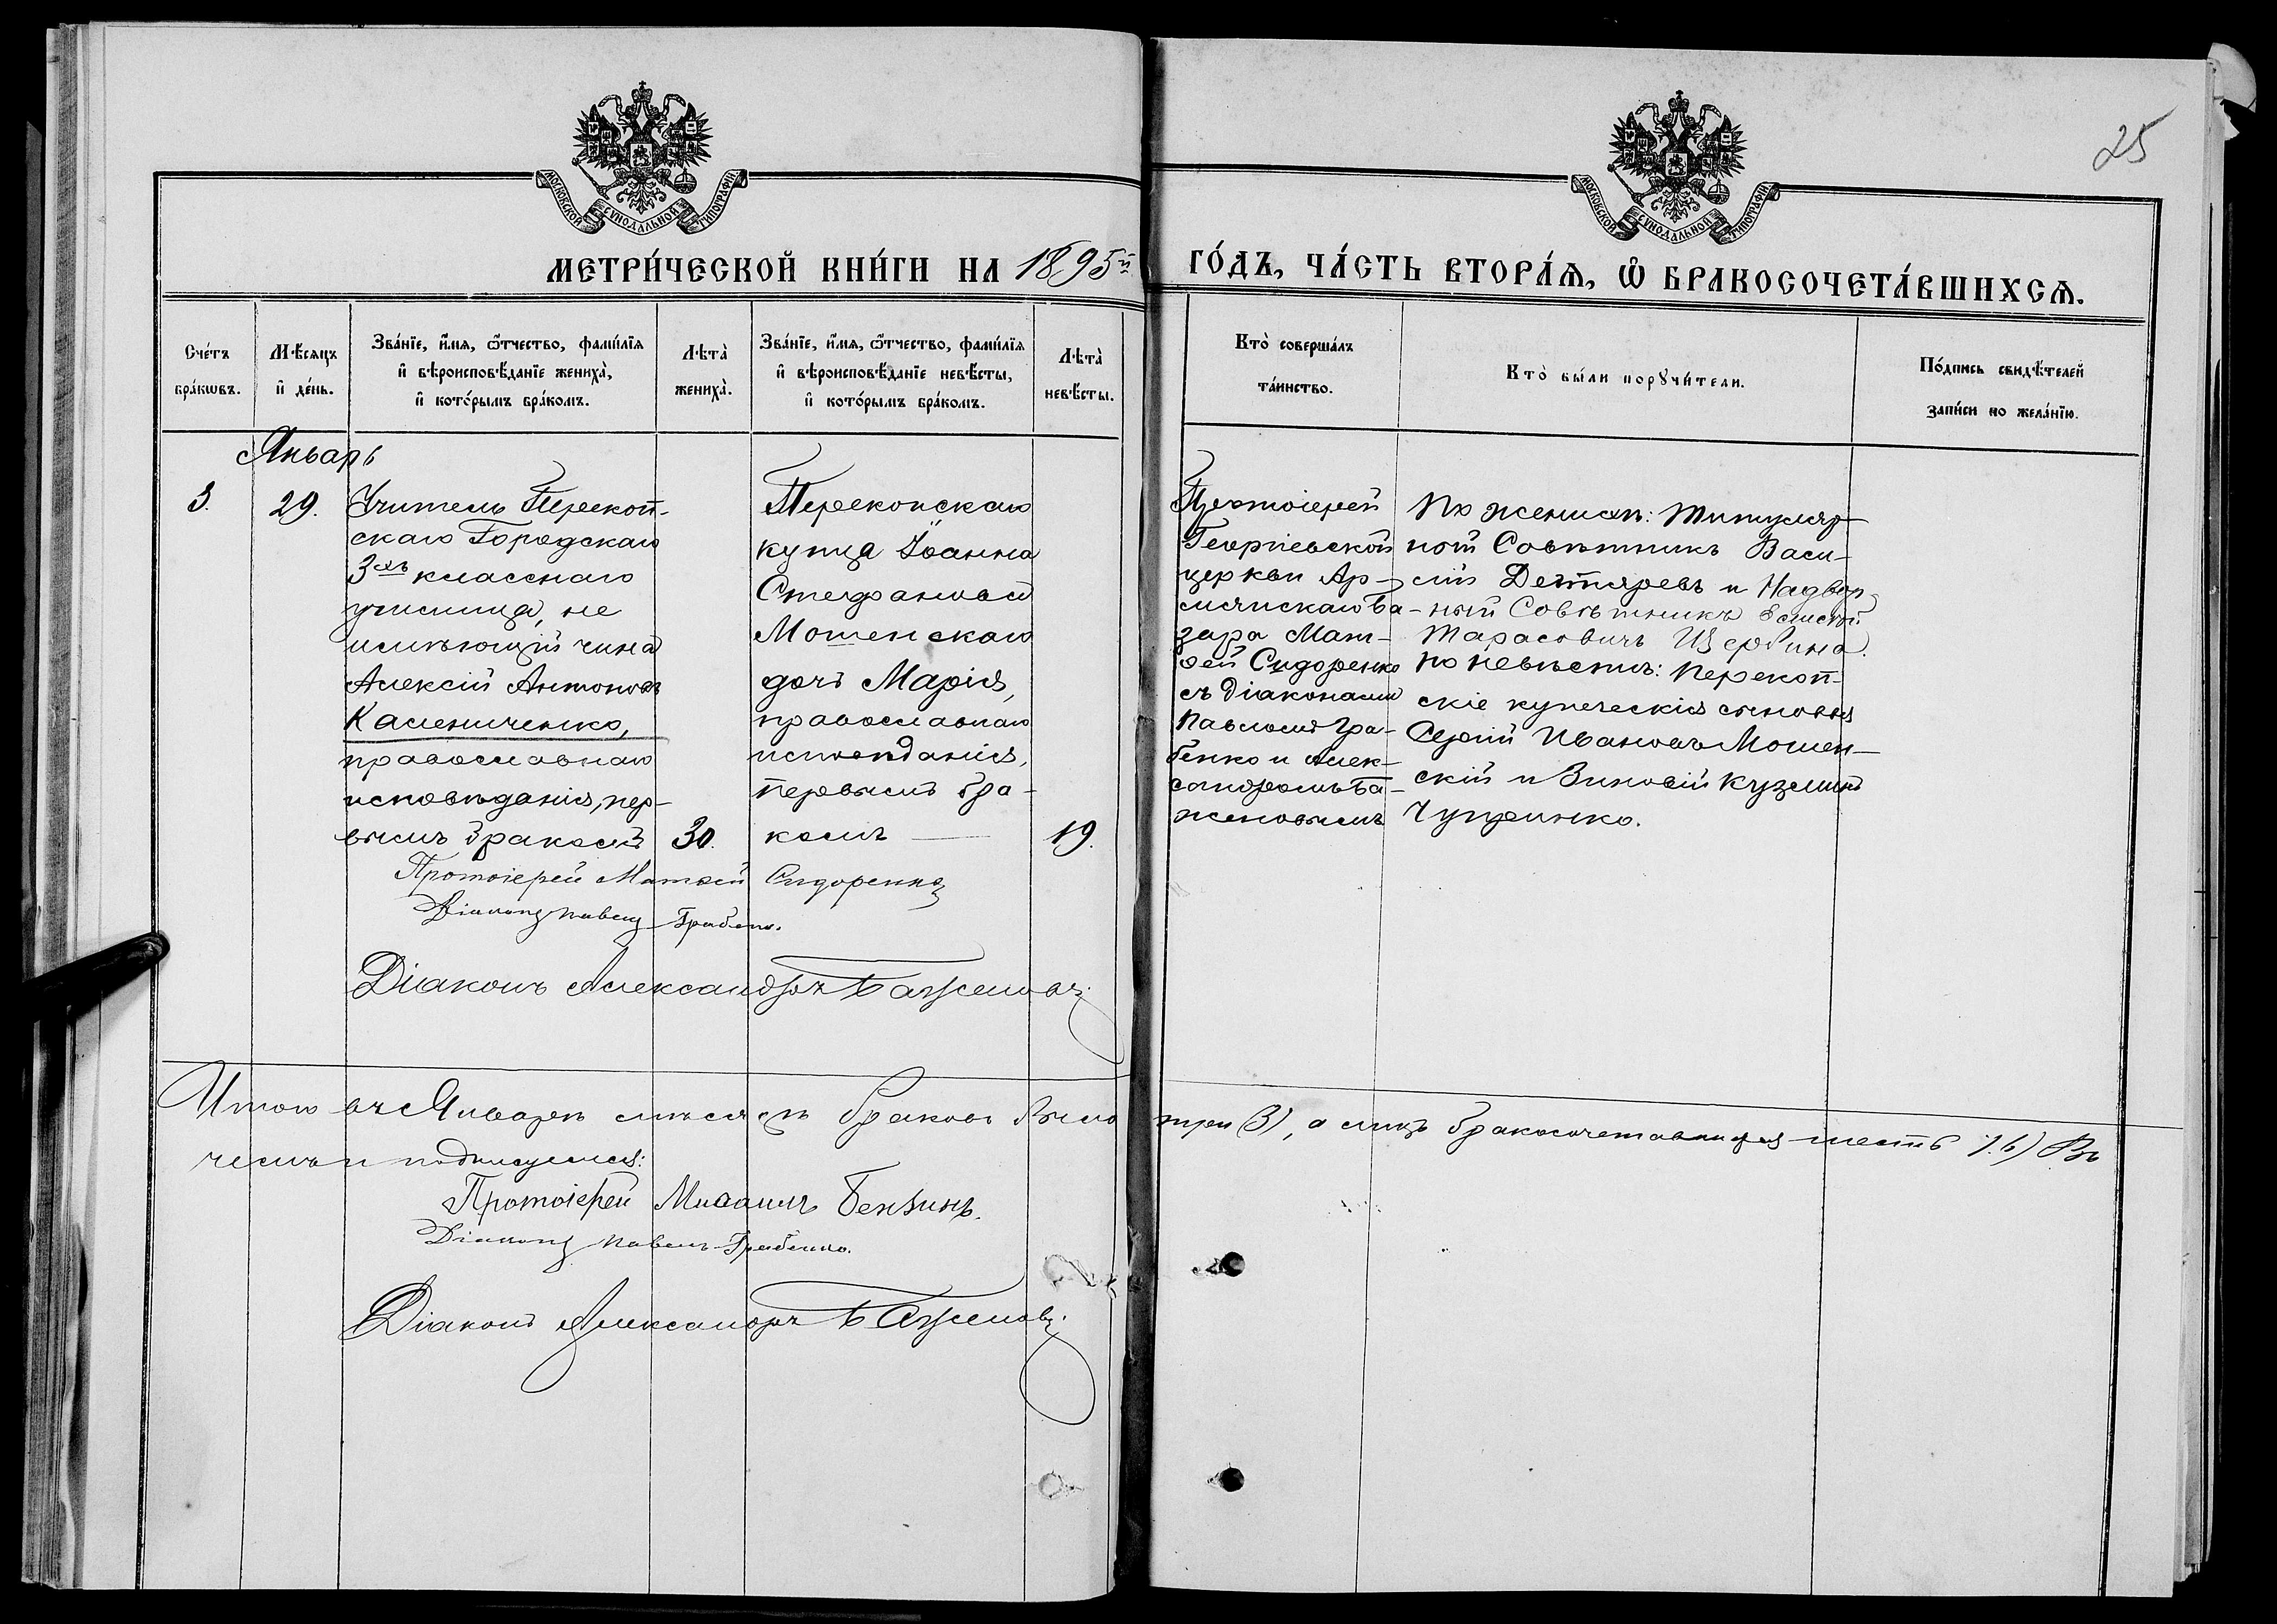 25
МОСКОВСКОЙ СУНОДАЛЬНОЙ ТИПОГРАФІИ
МОСКОВСКОЙ СУНОДАЛЬНОЙ ТИПОГРАФІИ
МЕТРИ́ЧЕСКОЙ КНИ́ГИ НА 1895й
ГО́ДЪ, ЧА́СТЬ ВТОРА́Ѧ, Ѡ БРАКОСОЧЕТА́ВШИХСѦ.
Сче́тъ
бра́кѡвъ.
Мѣ́сяцъ
и҆ де́нь.
Зва́нїе, и҆́мя, ѻ҆́тчество, фами́лїя
и҆ вѣроисповѣ́данїе жениха̀,
и҆ кото́рымъ бра́комъ.
Лѣта̀
жениха̀.
Зва́нїе, и҆́мя, ѻ҆́тчество, фами́лїя
и҆ вѣроисповѣ́данїе невѣ́сты,
и҆ кото́рымъ бра́комъ.
Лѣта̀
невѣ́сты.
Кто̀ соверша́лъ
та́инство.
Кто̀ бы́ли порꙋчи́тели.
По́дпись свидѣ́телей
за́писи по жела́нїю.
Январь
3.
29.
Учитель Перекоп-
скаго Городскаго
3хъ класснаго
училища, не
имѣющій чина
Алексій Антоновъ
Калениченко,
православнаго
исповѣданія, пер-
вымъ бракомъ
30.
Перекопскаго
купца Іоанна
Стефанова
Мошенскаго
дочь Марія,
православнаго
исповѣданія,
первымъ бра-
комъ
19.
Протоіерей
Георгіевской
церкви Ар-
мянскаго Ба-
зара Мат-
ѳей Сидоренко
съ діаконами
Павломъ Гра-
бенко и Алек-
сандромъ Ба-
женовымъ
По женихѣ: Титуляр-
ный Совѣтникъ Васи-
лій Дегтяревъ и Надвор-
ный Совѣтникъ
Тарасовичъ Щербина.
По невѣстѣ: Перекоп-
скіе купеческіе сыновья
Сергій Ивановъ Мошен-
скій и Зиновій Кузьминъ
Чупринко.
Протоіерей Матѳей Сидоренко
Діаконъ Павелъ Грабенко.
Діаконъ Александръ Баженовъ.
Итого въ Январѣ мѣсяцѣ браковъ было три (3), а лицъ бракосочетавшихся шесть (6) Въ
чемъ и подписуемся:
Протоіерей Михаилъ Бензинъ.
Діаконъ Павелъ Грабенко.
Діаконъ Александръ Баженовъ.